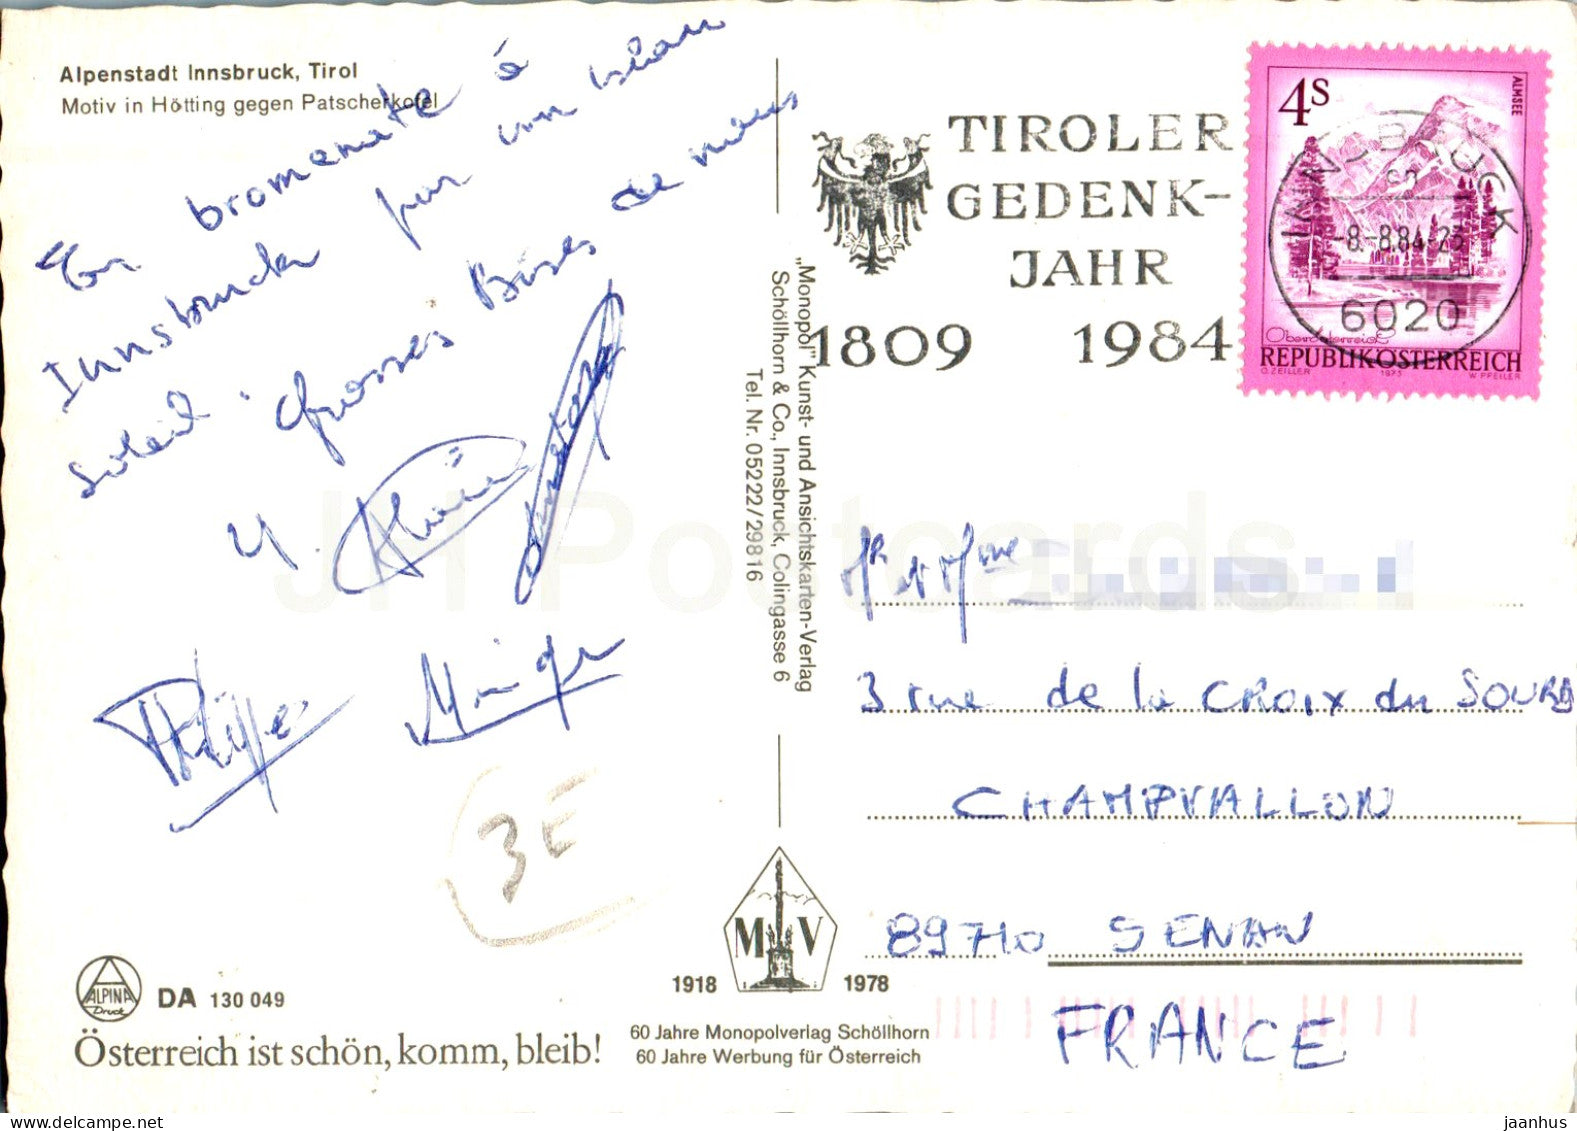 Alpenstadt Innsbruck, Tirol
Motiv in Hötting gegen Patscherkofel
En bromenate à
Innsbruck par un beau
soleil. Grosses Bises de nous
4
Philippe
3E
ALPINA
Druck
DA 130 049
Österreich ist schön, komm, bleib!
„Monopol" Kunst- und Ansichtskarten-Verlag
Schöllhorn & Co., Innsbruck, Colingasse 6
Tel. Nr. 05222/29816
M V
1918 1978
60 Jahre Monopolverlag Schöllhorn
60 Jahre Werbung für Österreich
TIROLER
GEDENK-
JAHR
1809 1984
4S
ALMSEE
INNSBRUCK
-8.-8.84-23
6020
Oberösterreich
REPUBLIK ÖSTERREICH
O. ZEILLER 1973 W. PFEILER
Mr et Mme
3 rue de la CROIX du SOURD
CHAMPVALLON
89710 SENAN
FRANCE
JH Postcards
jaanhus